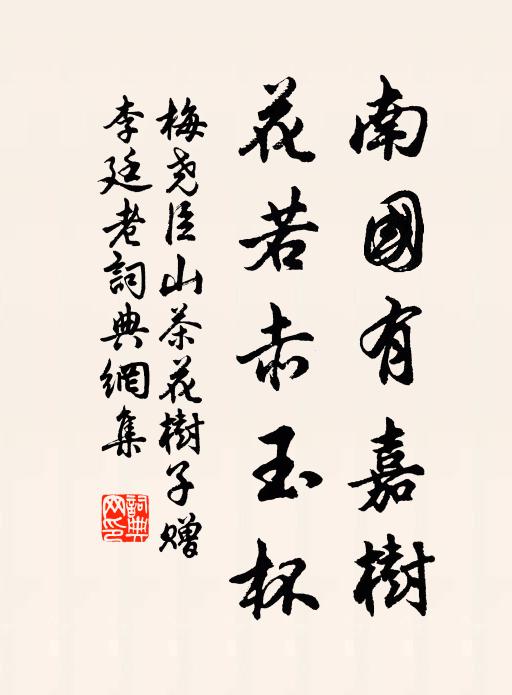 南國有嘉樹
花若赤玉杯
梅堯臣山茶花樹子贈
李廷老詞典網集
詞典網印